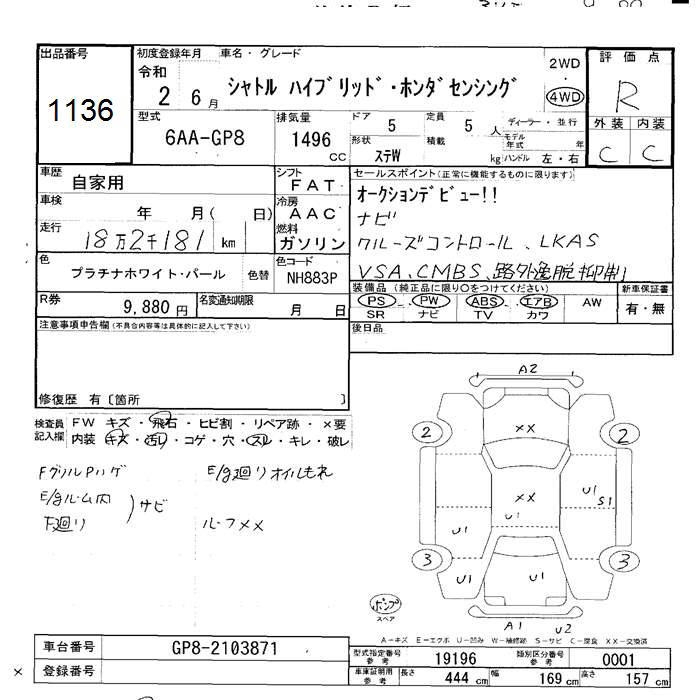 出品番号
1136
初度登録年月
令和
2 6月
車名・グレード
シャトル ハイブリッド・ホンダセンシング
2WD
4WD
評価点
R
外装 内装
C C
型式
6AA-GP8
排気量
1496
CC
ドア 5
定員 5 人
形状 ステW
積載 kg
ディーラー・並行
モデル年式 年
ハンドル 左・右
車歴 自家用
シフト FAT
車検 年 月( 日)
冷房 AAC
走行 18万2千181 km
燃料 ガソリン
色 プラチナホワイト・パール 色替
色コード NH883P
R券 9,880円
名変通知期限 月 日
セールスポイント(正常に機能するものに限ります)
オークションデビュー!!
ナビ
クルーズコントロール、LKAS
VSA、CMBS、路外逸脱抑制
装備品(純正品に限り○をつけてください)
PS PW ABS エアB AW
SR ナビ TV カワ
新車保証書
有・無
後日品
注意事項申告欄(不具合内容等は具体的に記入して下さい)
修復歴 有〔箇所 〕
検査員記入欄
FW キズ・飛石・ヒビ割・リペア跡・×要
内装 キズ・汚れ・コゲ・穴・スレ・キレ・破レ
FグリルPハゲ
E/gルーム内
F廻り
サビ
E/g廻りオイルもれ
ルーフ××
A2
2 2
××
××
U1
U1
S1
U1
3 3
U1
U1
ポンプ
スペア
A1 U2
A-キズ E-エクボ U-凹み W-補修跡 S-サビ C-腐食 XX-交換済
車台番号 GP8-2103871
× 登録番号
型式指定番号 参考 19196
類別区分番号 参考 0001
車庫証明用 参考 長さ 444 cm 幅 169 cm 高さ 157 cm